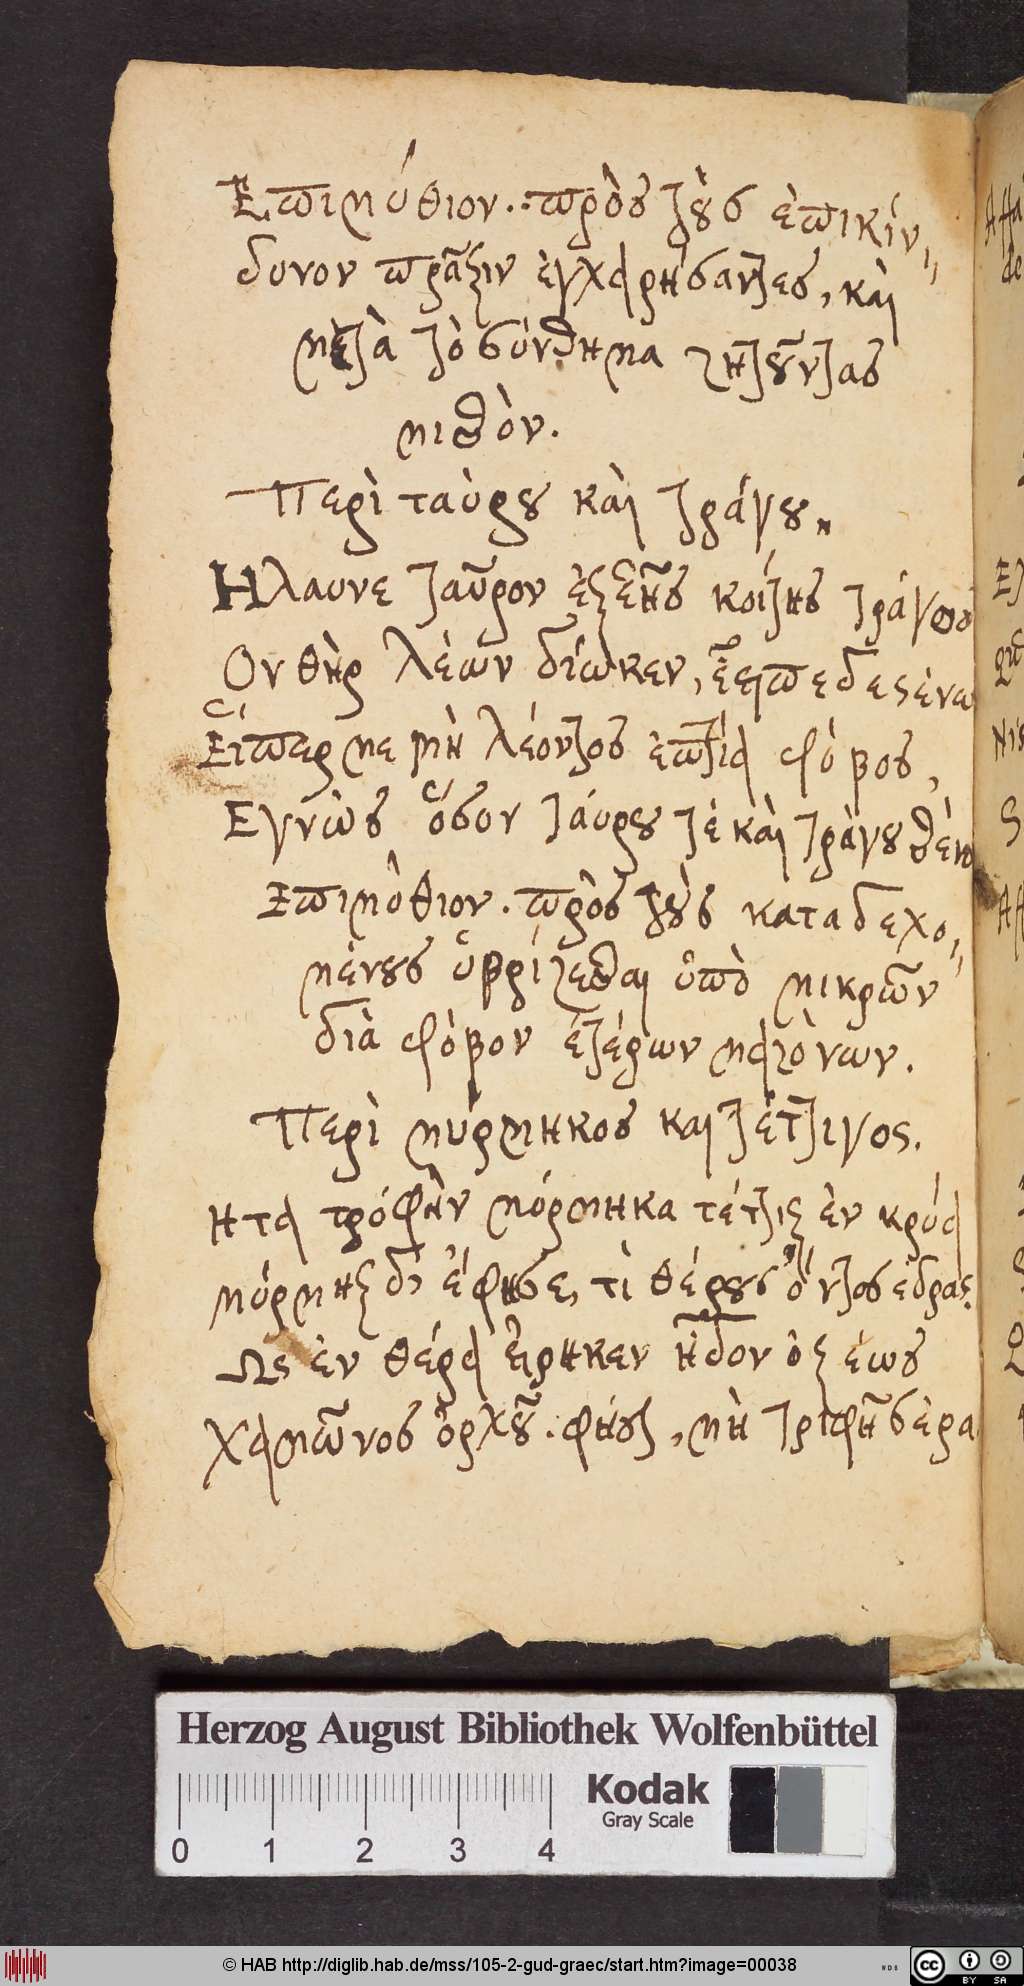 Ἐπιμύθιον. πρὸς τοὺς ἐπικίν,,
δυνον πρᾶξιν ἐγχειρήσαντες, καὶ
μετὰ τὸ σύνθημα ζητοῦντας
μισθὸν.
Περὶ ταύρου καὶ τράγου.
Ηλαυνε ταῦρον ἐξ ἑῆς κοίτης τράγος
Ὃν θὴρ λέων δίωκεν,
Εἵπερ με μὴ λέοντος ἐπτόει φόβος,
Εγνὼς ὅσον ταύρου τὲ καὶ τράγου σθένος
Επιμύθιον. πρὸς τοὺς καταδεχο,,
μένους ὑβρίζεσθαι ὑπὸ μικρῶν
διὰ φόβον ἑτέρων μειζόνων.
Περὶ μύρμηκος καὶ τέττιγος.
Ητει τρόφὴν μύρμηκα τέττιξ ἐν κρύει
μύρμηξ δ' ἔφησε, τί θέρους ὄντος ἔδρας.
Ως ἐν θέρει εἴρηκεν ᾖδον ὀξέως
Χειμῶνος ὀρχοῦ. φησὶ, μὴ τρυφῆς ἔρα
Herzog August Bibliothek Wolfenbüttel
Kodak
Gray Scale
0 1 2 3 4
© HAB http://diglib.hab.de/mss/105-2-gud-graec/start.htm?image=00038
CC BY SA